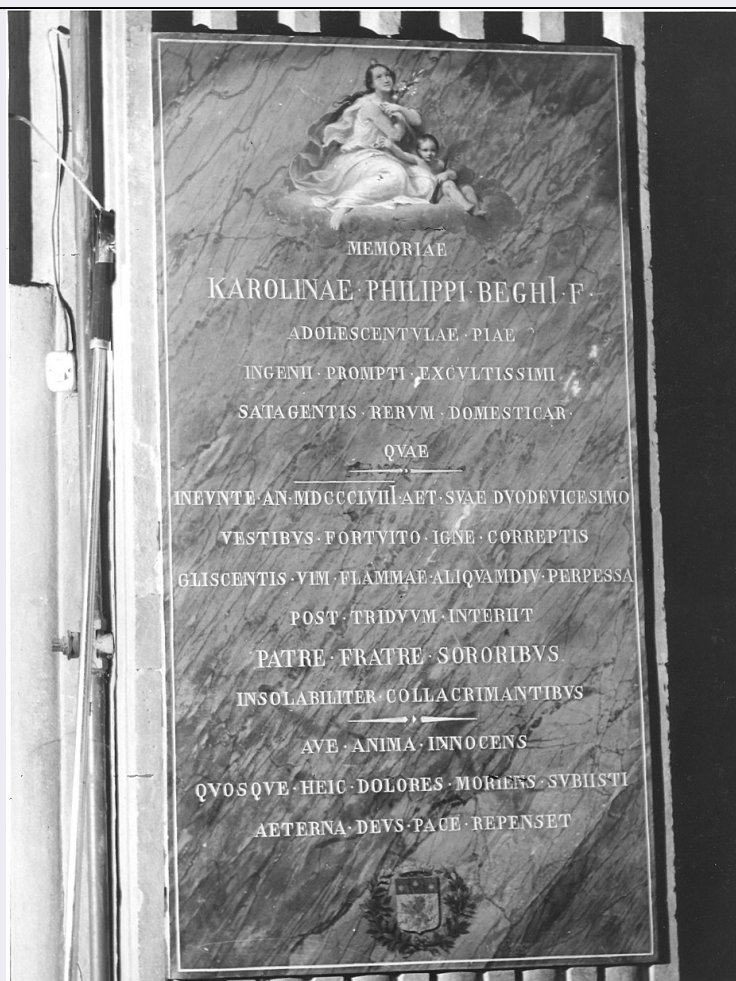 MEMORIAE
KAROLINAE · PHILIPPI · BEGHI · F ·
ADOLESCENTVLAE · PIAE
INGENII · PROMPTI · EXCVLTISSIMI
SATAGENTIS · RERVM · DOMESTICAR ·
QVAE
INEVNTE · AN · MDCCCLVIII · AET · SVAE DVODEVICESIMO
VESTIBVS · FORTVITO · IGNE · CORREPTIS
GLISCENTIS · VIM · FLAMMAE · ALIQVAMDIV · PERPESSA
POST · TRIDVVM · INTERIIT
PATRE · FRATRE · SORORIBVS
INSOLABILITER · COLLACRIMANTIBVS
AVE · ANIMA · INNOCENS
QVOSQVE · HEIC · DOLORES · MORIENS · SVBIISTI
AETERNA · DEVS · PACE · REPENSET